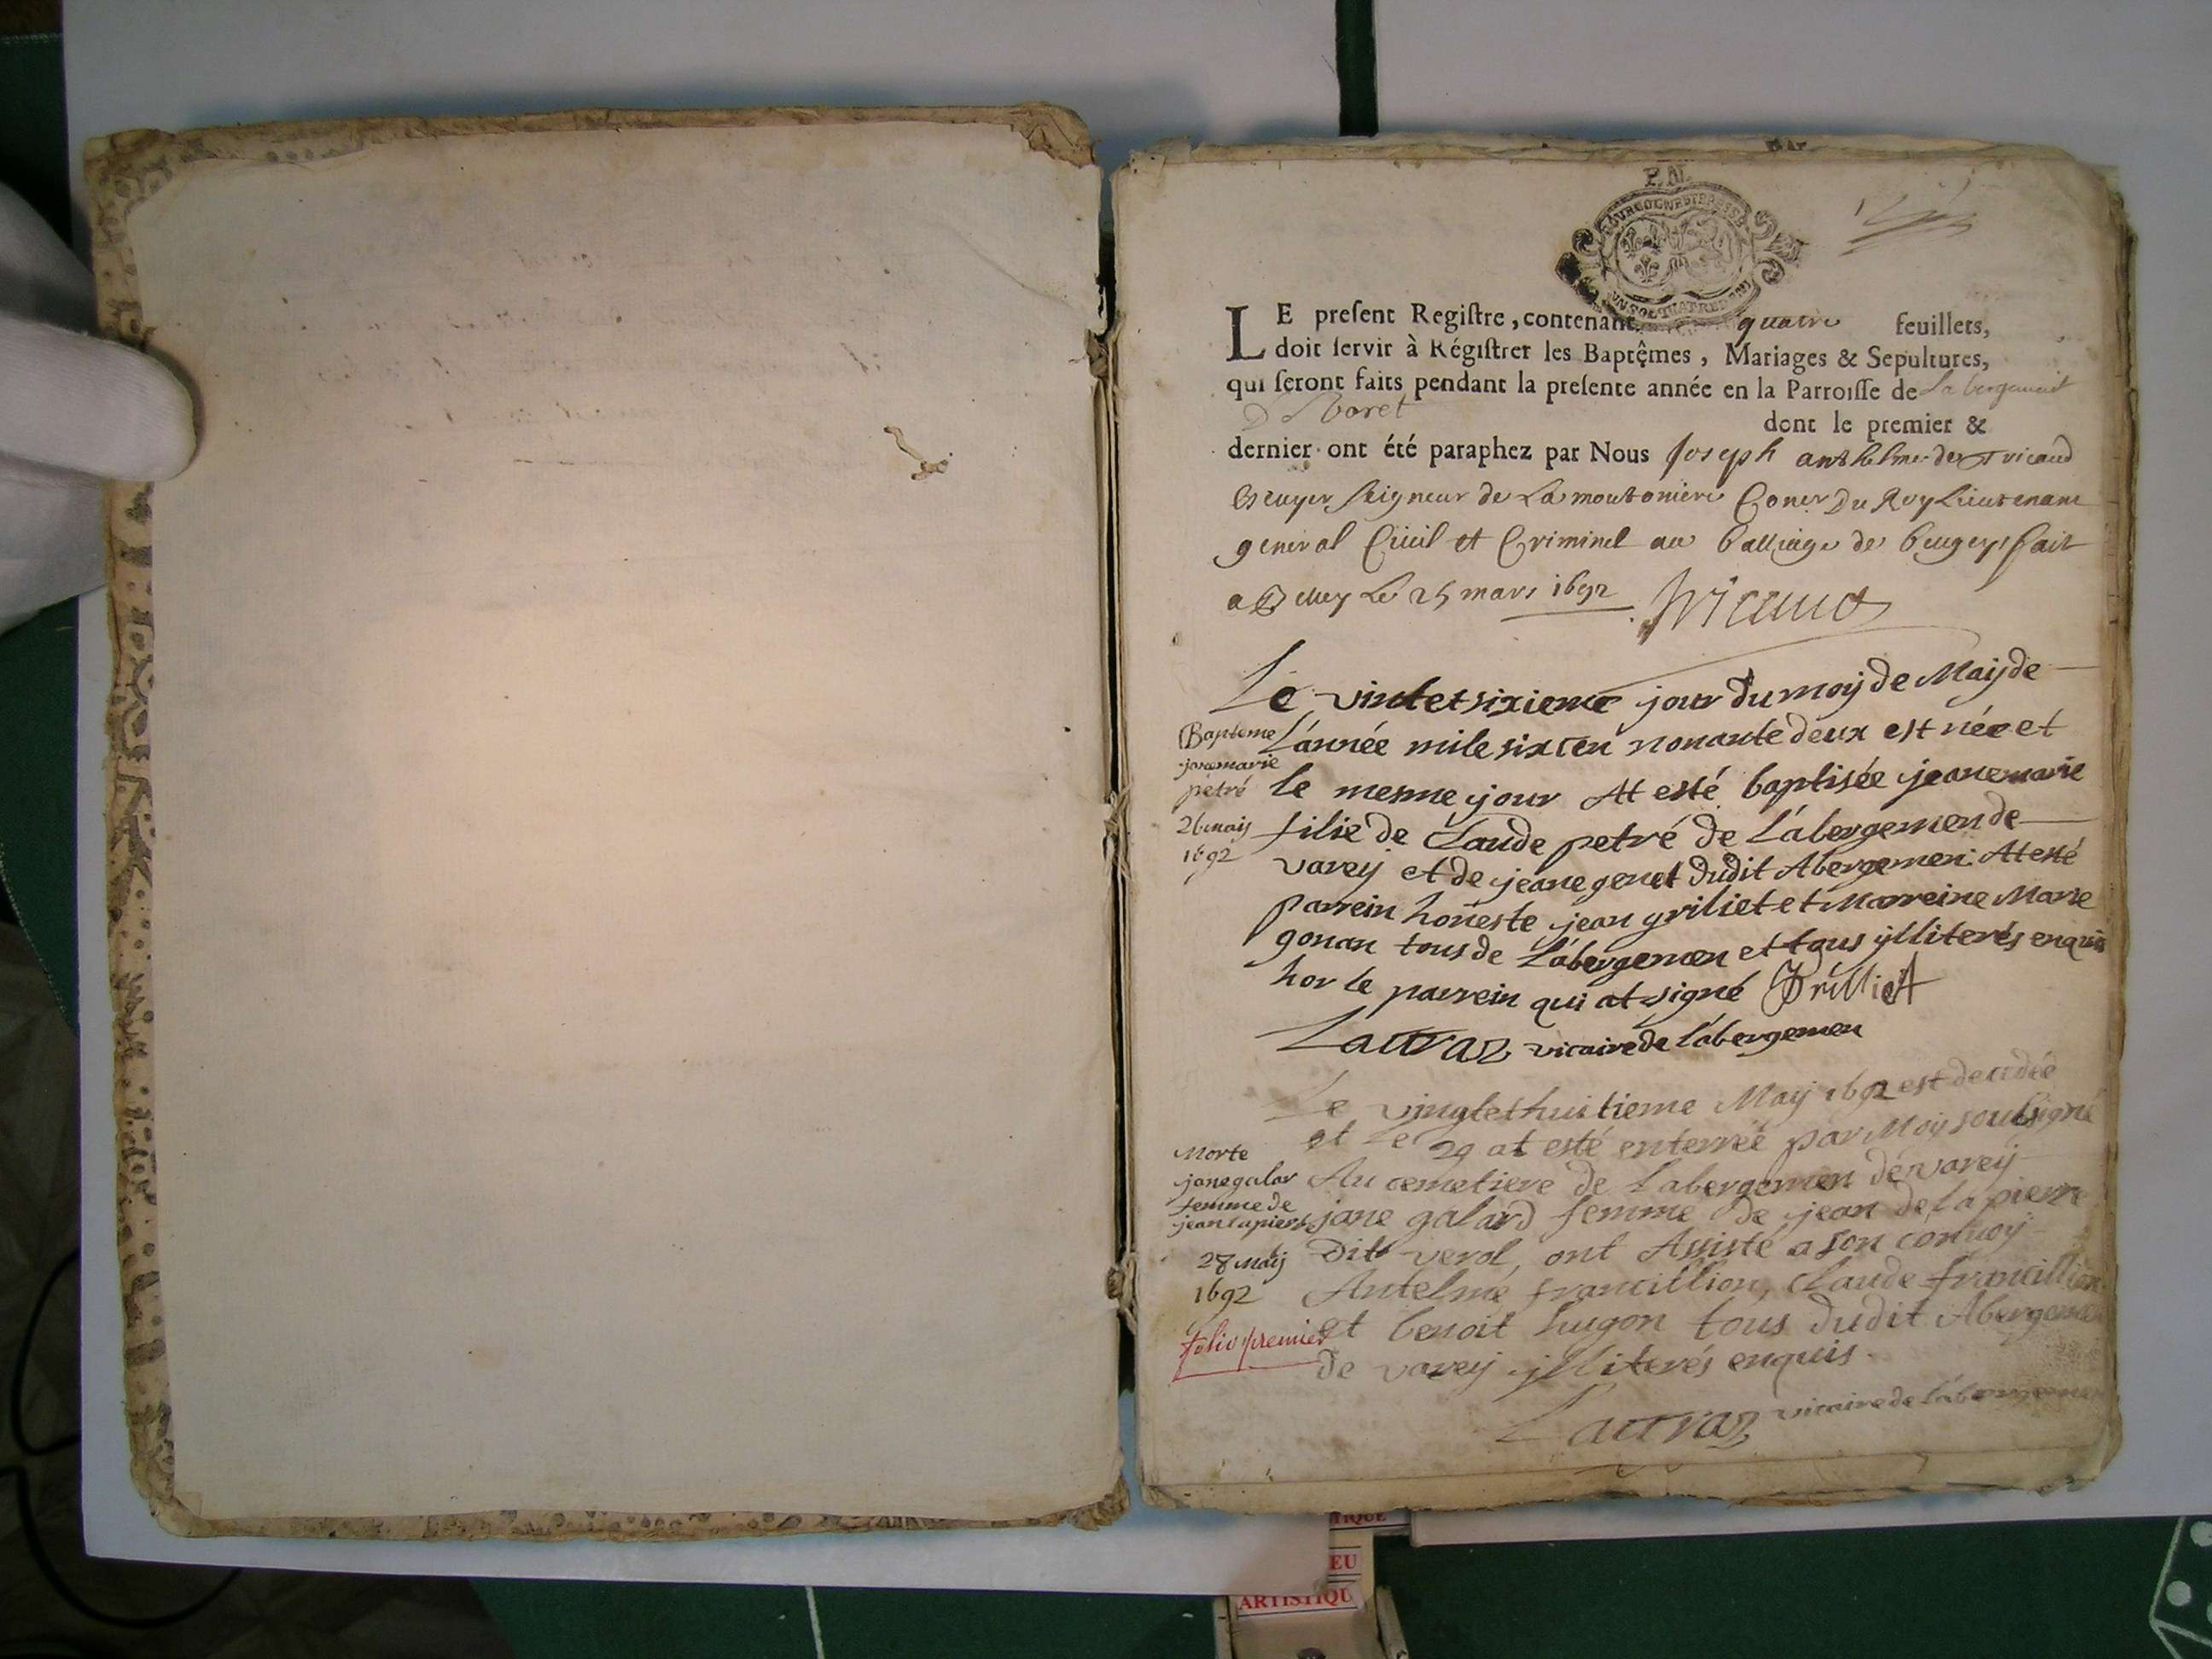 P. DE
BOURGOGNE ET BRESSE
UN SOL QUATRE DEN
LE preſent Regiſtre, contenant quatre feuillets,
doit ſervir à Régiſtrer les Baptêmes, Mariages & Sepultures,
qui ſeront faits pendant la preſente année en la Parroiſſe de La bergement
D Varet
dont le premier &
dernier ont été paraphez par Nous Joseph anthelme de Tricaud
Escuyer Seigneur de La moutoniere Coner Du Roy Lieutenant
general Ciuil et Criminel au balliage de beugeys fait
a Belley Le 25 mars 1692 Tricaud
Le vintetsixieme jour du moy de Maij de
L'année mile six cen nonante deux est née et
le mesme jour At esté baptisée jeane marie
filie de Claude petré de L'abergemen de
varey et de jeane genet dudit Abergemen: At esté
parrein honeste jean griliet et Marreine Marie
gonan tous de L'abergemen et tous ylliterés enquis
hor le parrein qui at signé Grilliet
Lauraz vicaire de l'abergemen
Bapteme
jane marie
petré
26 maij
1692
Le vingtethuitieme Maij 1692 est decedée
et Le 29 at esté enterrée par Moy soubsigné
Au cemetiere de Labergemen de varey
jane galard femme de jean de la pierre
Dit verol, ont Assisté a son convoy
Antelme francillion, Claude francillion
et benoit hugon tous dudit Abergemen
de varey ylliterés enquis.
Lauraz vicaire de l'abergemen
Morte
jane galar
femme de
jean lapierre
28 Maij
1692
folio premier
TIQUE
EU
ARTISTIQU